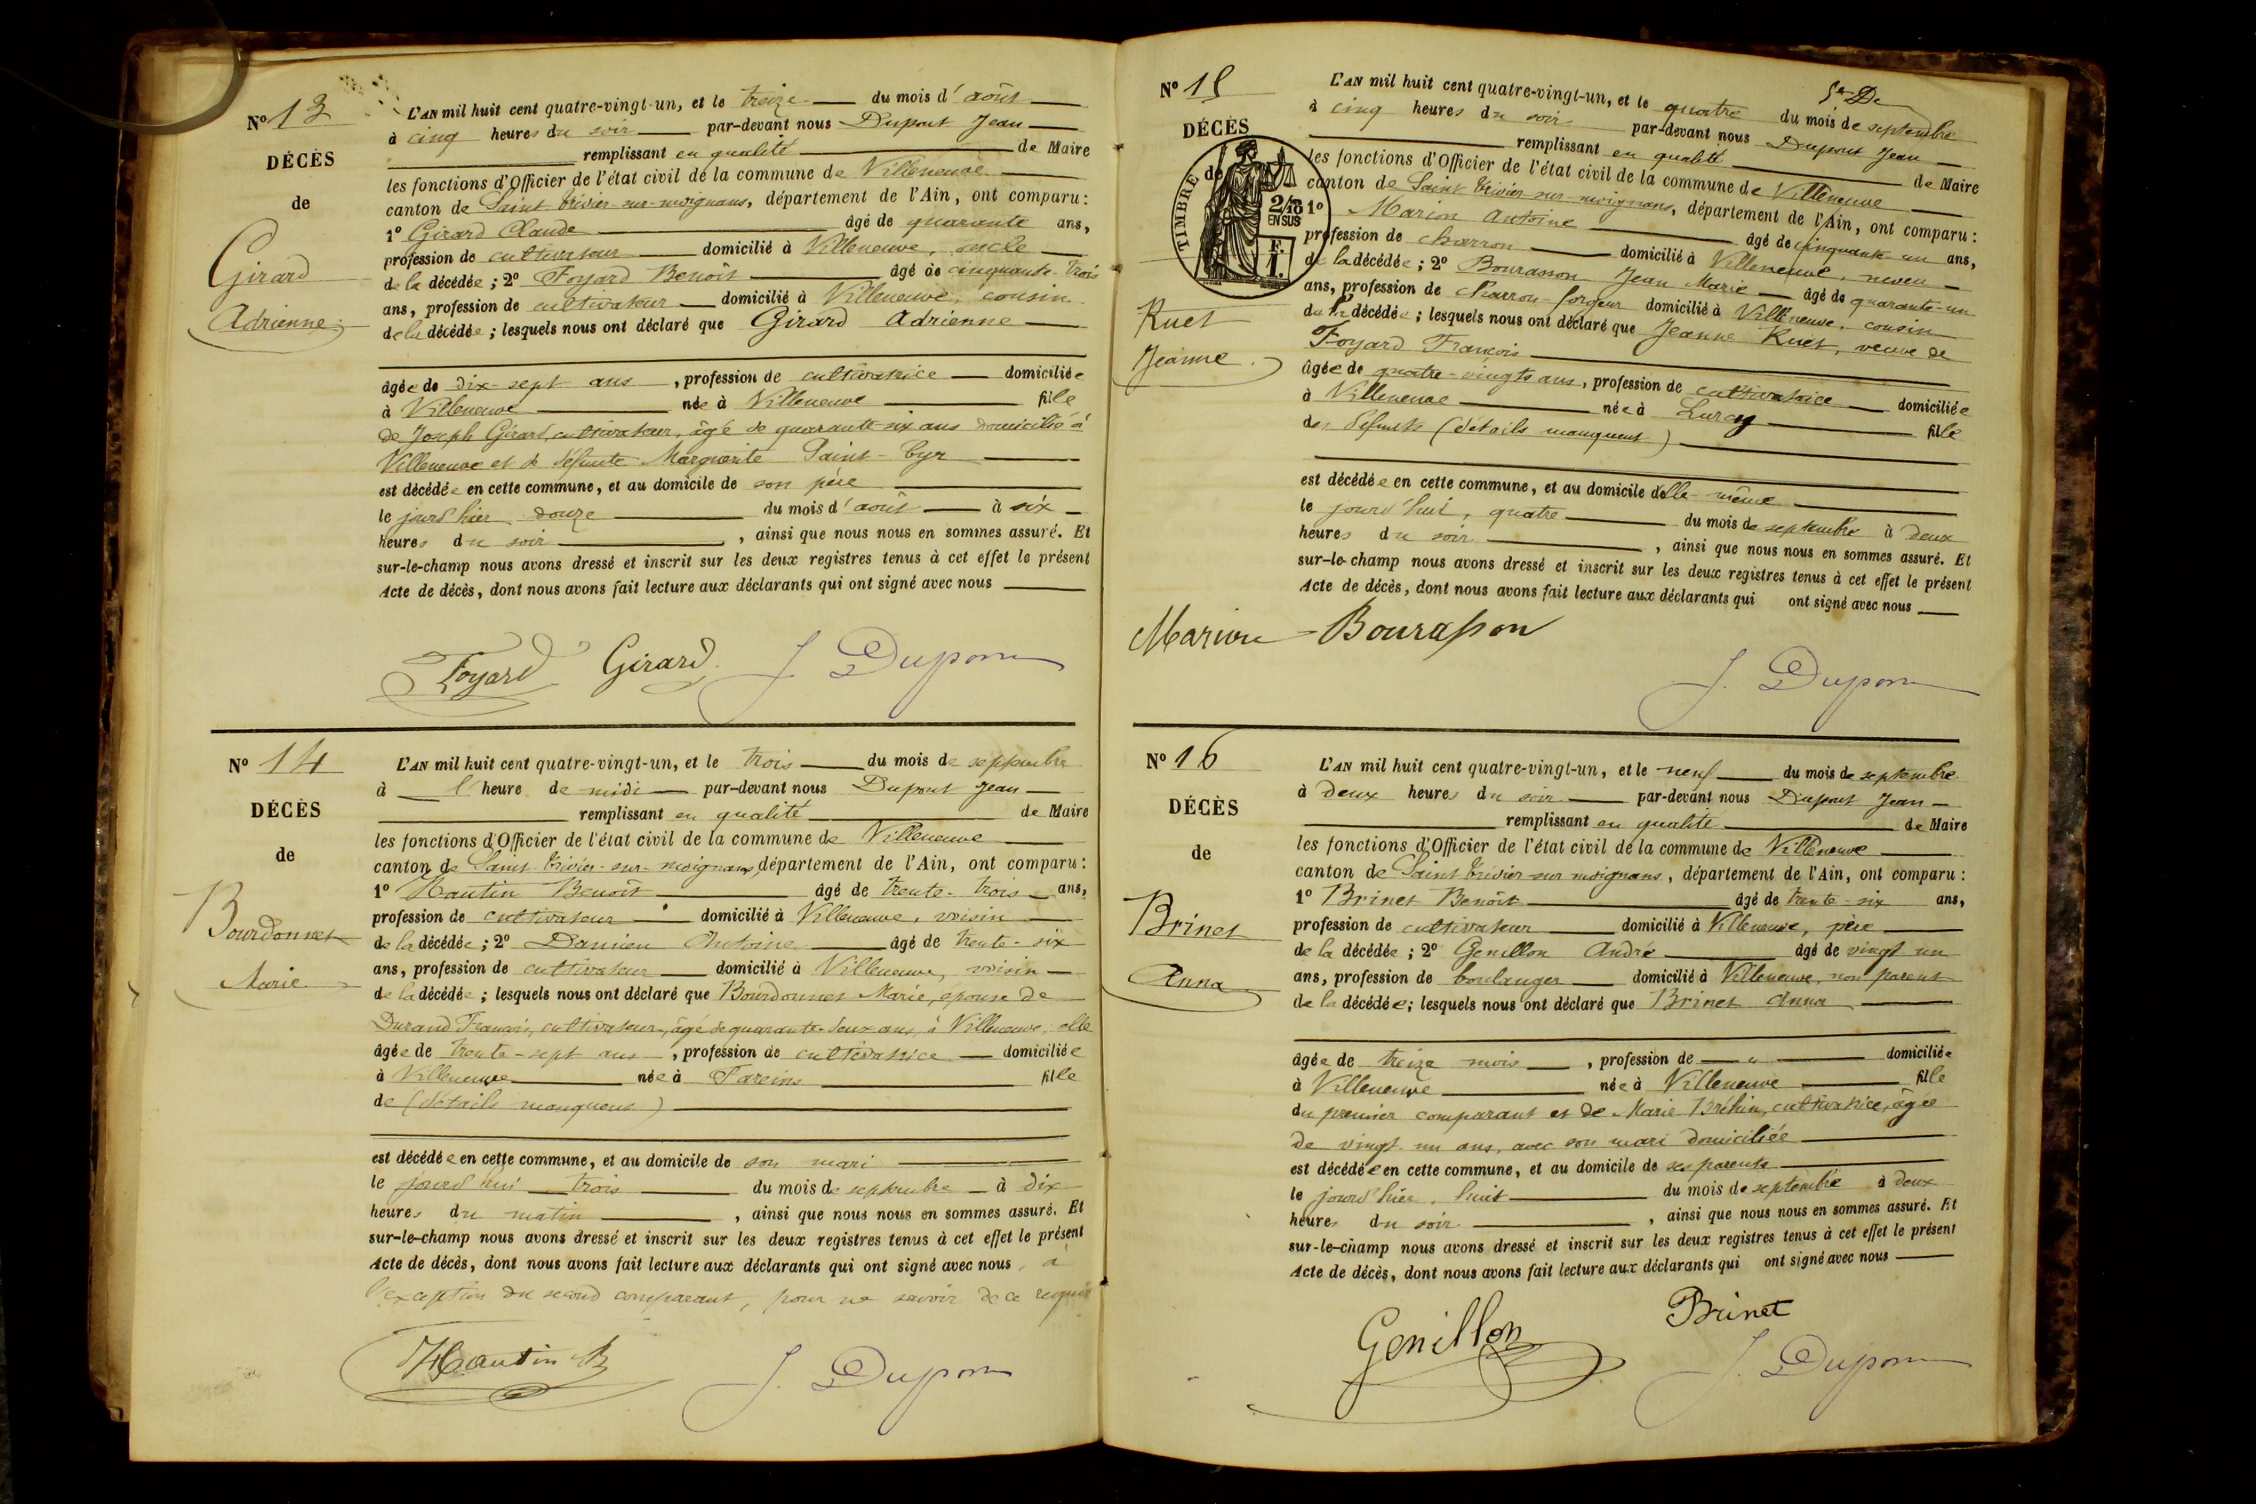 N° 13
DÉCÈS
de
Girard
Adrienne
L'AN mil huit cent quatre-vingt-un, et le treize du mois d'août
à cinq heures du soir par-devant nous Dupont Jean
remplissant en qualité de Maire
les fonctions d'Officier de l'état civil de la commune de Villeneuve
canton de Saint Trivier-sur-moignans, département de l'Ain, ont comparu :
1° Girard Claude âgé de quarante ans,
profession de cultivateur domicilié à Villeneuve, oncle
de la décédée ; 2° Foyard Benoît âgé de cinquante-trois
ans, profession de cultivateur domicilié à Villeneuve, cousin
de la décédée ; lesquels nous ont déclaré que Girard Adrienne
âgée de dix-sept ans, profession de cultivatrice domiciliée
à Villeneuve née à Villeneuve fille
de Joseph Girard, cultivateur, âgé de quarante-six ans domicilié à
Villeneuve et de défunte Marguerite Saint-Cyr
est décédée en cette commune, et au domicile de son père
le jourd'hier douze du mois d'août à six
heures du soir, ainsi que nous nous en sommes assuré. Et
sur-le-champ nous avons dressé et inscrit sur les deux registres tenus à cet effet le présent
Acte de décès, dont nous avons fait lecture aux déclarants qui ont signé avec nous
Foyard Girard J. Dupont
N° 14
DÉCÈS
de
Bourdonnet
Marie
L'AN mil huit cent quatre-vingt-un, et le trois du mois de septembre
à l'heure de midi par-devant nous Dupont Jean
remplissant en qualité de Maire
les fonctions d'Officier de l'état civil de la commune de Villeneuve
canton de Saint Trivier-sur-moignans, département de l'Ain, ont comparu :
1° Hautin Benoît âgé de trente-trois ans,
profession de cultivateur domicilié à Villeneuve, voisin
de la décédée ; 2° Damien Antoine âgé de trente-six
ans, profession de cultivateur domicilié à Villeneuve, voisin
de la décédée ; lesquels nous ont déclaré que Bourdonnet Marie, épouse de
Durand François, cultivateur, âgé de quarante-deux ans, à Villeneuve, elle
âgée de trente-sept ans, profession de cultivatrice domiciliée
à Villeneuve née à Fareins fille
de (détails manquent)
est décédée en cette commune, et au domicile de son mari
le jourd'hui trois du mois de septembre à dix
heures du matin, ainsi que nous nous en sommes assuré. Et
sur-le-champ nous avons dressé et inscrit sur les deux registres tenus à cet effet le présent
Acte de décès, dont nous avons fait lecture aux déclarants qui ont signé avec nous, à
l'exception du second comparant, pour ne savoir de ce requis
Hautin B J. Dupont
N° 15
DÉCÈS
de
TIMBRE
2/10
EN SUS
F.
1.
Ruet
Jeanne
L'AN mil huit cent quatre-vingt-un, et le quatre du mois de septembre
à cinq heures du soir par-devant nous Dupont Jean
remplissant en qualité de Maire
les fonctions d'Officier de l'état civil de la commune de Villeneuve
canton de Saint Trivier-sur-moignans, département de l'Ain, ont comparu :
1° Marion Antoine âgé de cinquante un ans,
profession de charron domicilié à Villeneuve, neveu
de la décédée ; 2° Bourasson Jean Marie âgé de quarante-un
ans, profession de charron-forgeur domicilié à Villeneuve, cousin
de la décédée ; lesquels nous ont déclaré que Jeanne Ruet, veuve de
Foyard François
âgée de quatre-vingts ans, profession de cultivatrice domiciliée
à Villeneuve née à Lurcy fille
de défunts (détails manquent)
est décédée en cette commune, et au domicile d'elle-même
le jourd'hui, quatre du mois de septembre à deux
heures du soir, ainsi que nous nous en sommes assuré. Et
sur-le-champ nous avons dressé et inscrit sur les deux registres tenus à cet effet le présent
Acte de décès, dont nous avons fait lecture aux déclarants qui ont signé avec nous
Marion Bourasson
J. Dupont
N° 16
DÉCÈS
de
Brinet
Anna
L'AN mil huit cent quatre-vingt-un, et le neuf du mois de septembre
à deux heures du soir par-devant nous Dupont Jean
remplissant en qualité de Maire
les fonctions d'Officier de l'état civil de la commune de Villeneuve
canton de Saint Trivier-sur-moignans, département de l'Ain, ont comparu :
1° Brinet Benoît âgé de trente-six ans,
profession de cultivateur domicilié à Villeneuve, père
de la décédée ; 2° Genillon André âgé de vingt un
ans, profession de boulanger domicilié à Villeneuve, non parent
de la décédée ; lesquels nous ont déclaré que Brinet Anna
âgée de treize mois, profession de " domiciliée
à Villeneuve née à Villeneuve fille
du premier comparant et de Marie Bréhin, cultivatrice, âgée
de vingt un ans, avec son mari domiciliée
est décédée en cette commune, et au domicile de ses parents
le jourd'hier, huit du mois de septembre à deux
heures du soir, ainsi que nous nous en sommes assuré. Et
sur-le-champ nous avons dressé et inscrit sur les deux registres tenus à cet effet le présent
Acte de décès, dont nous avons fait lecture aux déclarants qui ont signé avec nous
Genillon Brinet
J. Dupont